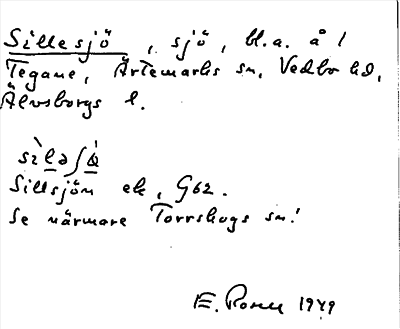 Sillesjö, sjö, bl.a. å 1
Tegane, Ärtemarks sn, Vedbo hd,
Älvsborgs l.
Sillsjön ek, G62.
Se närmare Torrskogs sn!
E. 1949